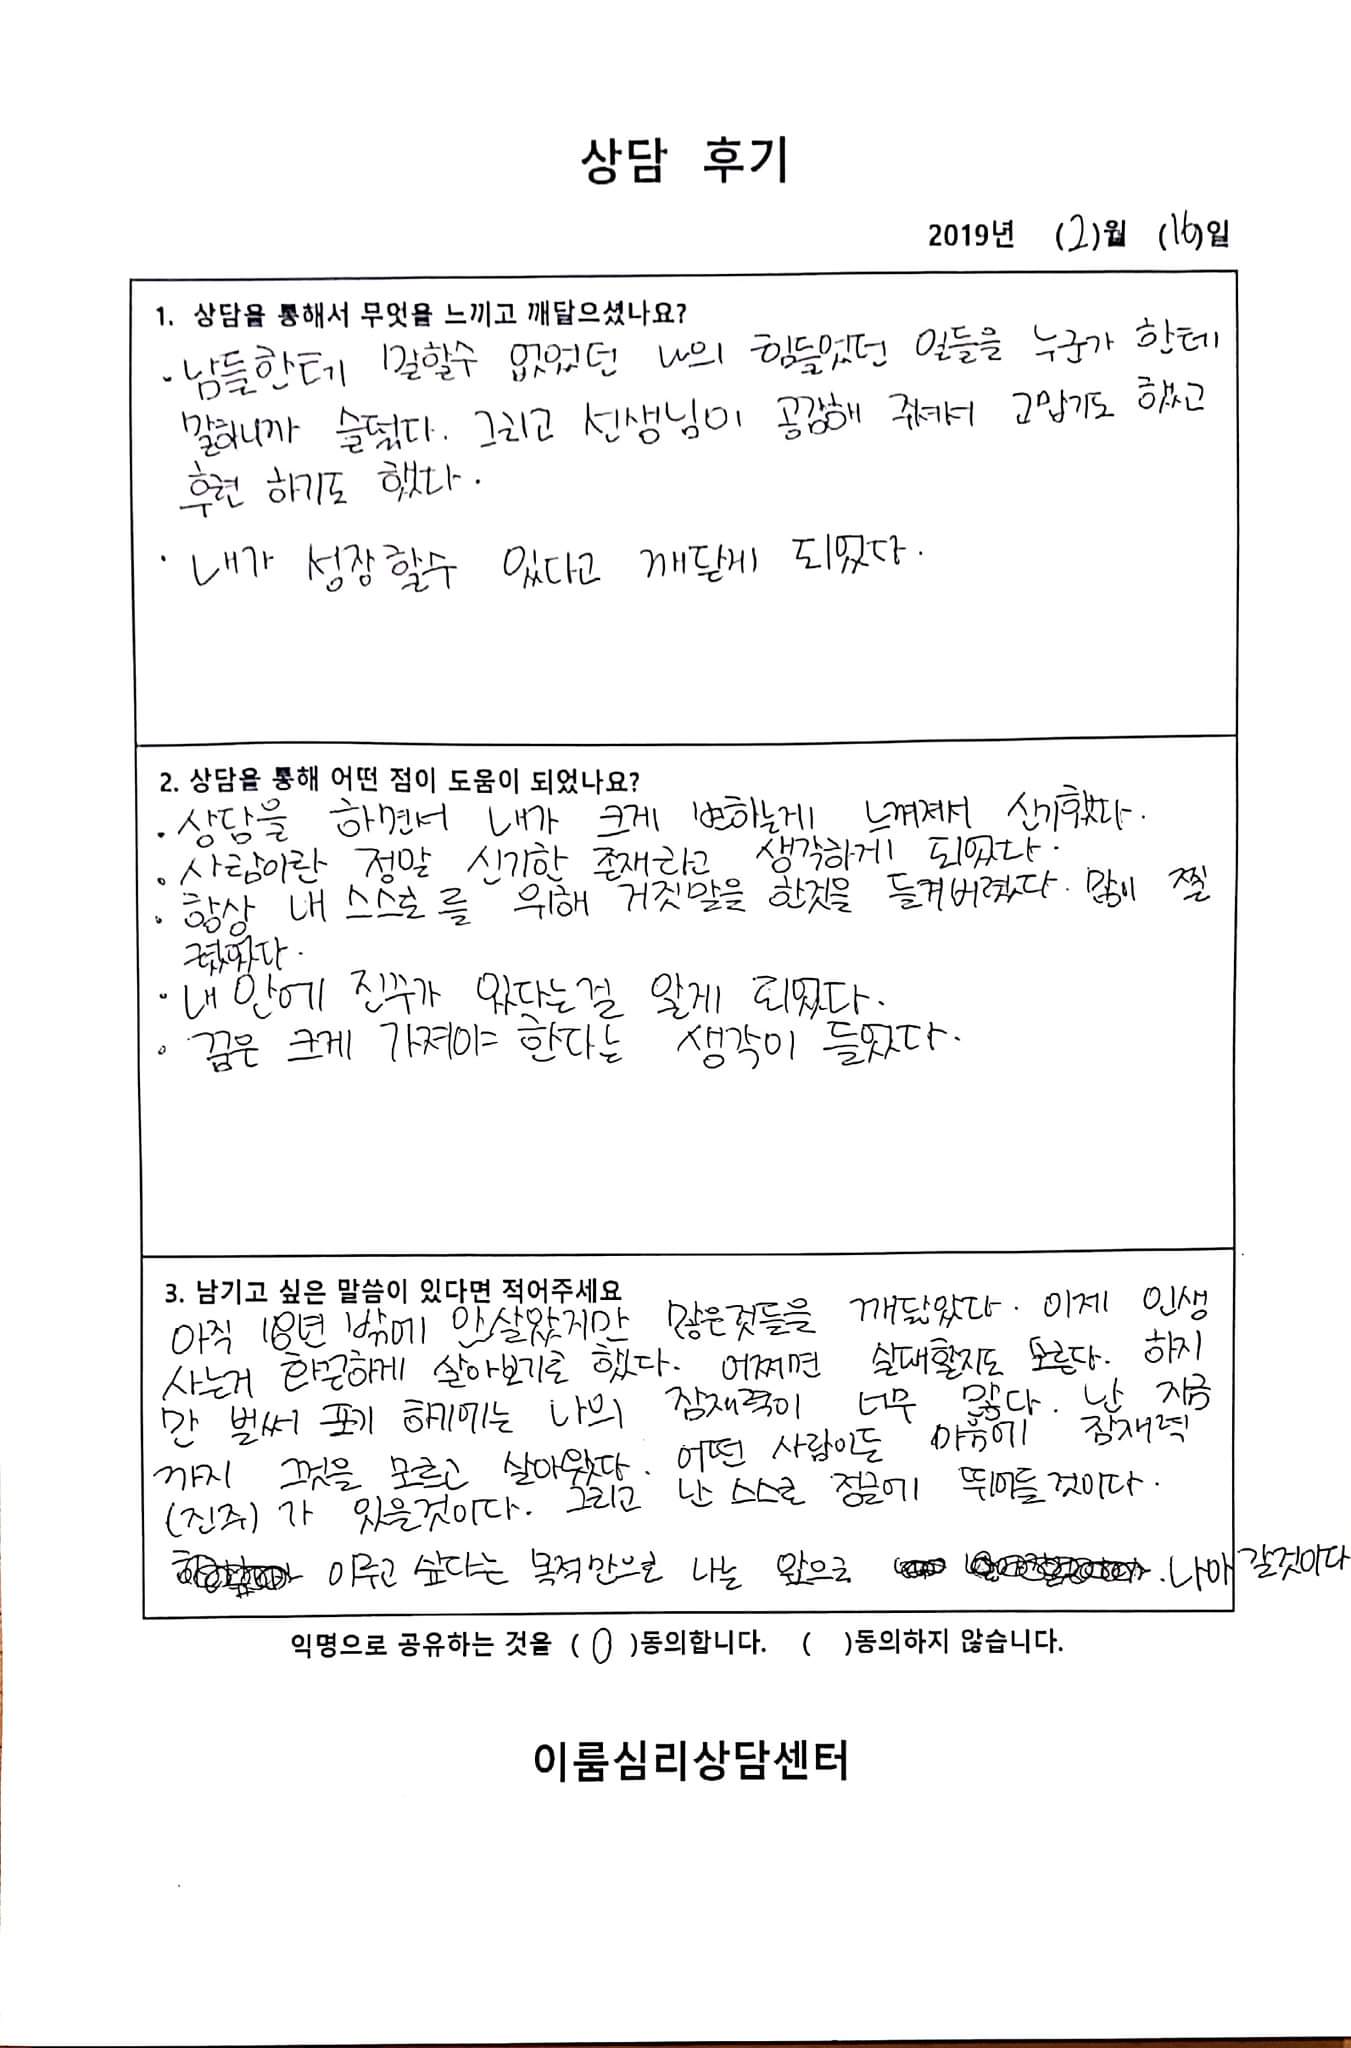 상담 후기
2019년 (2)월 (16)일
1. 상담을 통해서 무엇을 느끼고 깨달으셨나요?
· 남들한테 말할수 없었던 나의 힘들었던 일들을 누군가 한테
말하니까 슬펐다. 그리고 선생님이 공감해 줘셔서 고맙기도 했고
후련 하기도 했다.
· 내가 성장할수 있다고 깨닫게 되었다.
2. 상담을 통해 어떤 점이 도움이 되었나요?
· 상담을 하면서 내가 크게 변하는게 느껴져서 신기했다.
· 사람이란 정말 신기한 존재라고 생각하게 되었다.
· 항상 내 스스로를 위해 거짓말을 한것을 들켜버렸다. 많이 찔
렸었다.
· 내 안에 진주가 있다는걸 알게 되었다.
· 꿈은 크게 가져야 한다는 생각이 들었다.
3. 남기고 싶은 말씀이 있다면 적어주세요
아직 18년 밖에 안살았지만 많은것들을 깨달았다. 이제 인생
사는거 화끈하게 살아보기로 했다. 어쩌면 실패할지도 모른다. 하지
만 벌써 포기 하기에는 나의 잠재력이 너무 많다. 난 지금
까지 그것을 모르고 살아왔다. 어떤 사람이든 마음에 잠재력
(진주)가 있을것이다. 그리고 난 스스로 정글에 뛰어들것이다.
이루고 싶다는 목적만으로 나는 앞으로 나아갈것이다
익명으로 공유하는 것을 (O)동의합니다. ( )동의하지 않습니다.
이룸심리상담센터